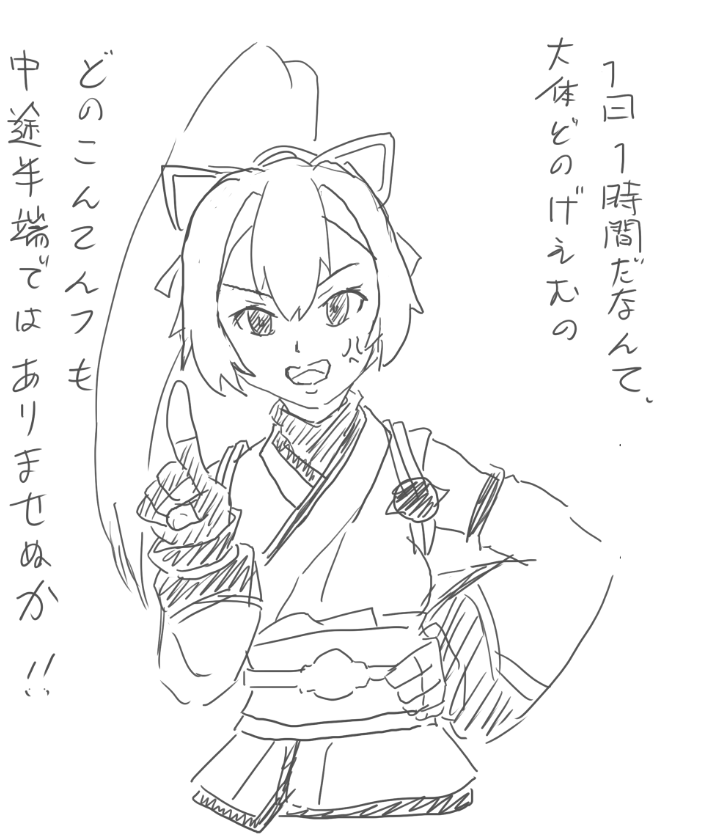 1日1時間だなんて、
大体どのげえむの
どのこんてんつも
中途半端ではありませぬか!!